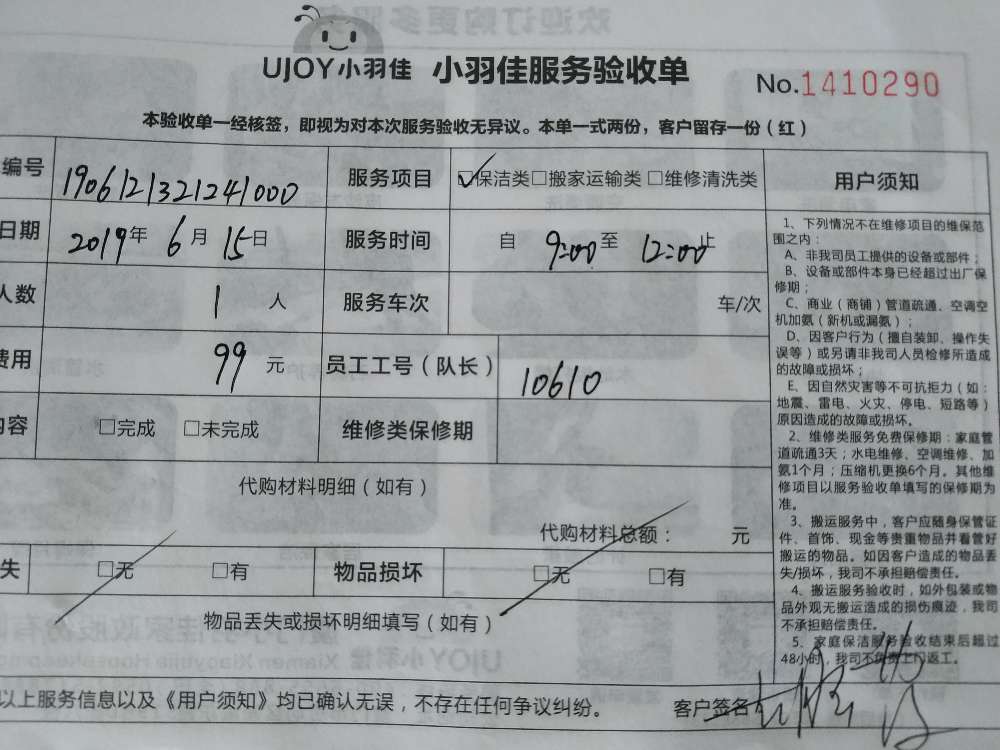 UJOY小羽佳 小羽佳服务验收单 No.1410290
本验收单一经核签，即视为对本次服务验收无异议。本单一式两份，客户留存一份（红）
编号 1906121321241000 服务项目 ☑保洁类□搬家运输类□维修清洗类 用户须知
日期 2019年6月15日 服务时间 自9:00至12:00止
人数 1人 服务车次 车/次
费用 99元 员工工号（队长） 10610
内容 □完成 □未完成 维修类保修期
代购材料明细（如有）
代购材料总额： 元
失 □无 □有 物品损坏 □无 □有
物品丢失或损坏明细填写（如有）
1、下列情况不在维修项目的维保范
围之内：
A、非我司员工提供的设备或部件；
B、设备或部件本身已经超过出厂保
修期；
C、商业（商铺）管道疏通、空调空
机加氨（新机或漏氨）；
D、因客户行为（擅自装卸、操作失
误等）或另请非我司人员检修所造成
的故障或损坏；
E、因自然灾害等不可抗拒力（如：
地震、雷电、火灾、停电、短路等）
原因造成的故障或损坏。
2、维修类服务免费保修期：家庭管
道疏通3天；水电维修、空调维修、加
氨1个月；压缩机更换6个月。其他维
修项目以服务验收单填写的保修期为
准。
3、搬运服务中，客户应随身保管证
件、首饰、现金等贵重物品并看管好
搬运的物品。如因客户造成的物品丢
失/损坏，我司不承担赔偿责任。
4、搬运服务验收时，如外包装或物
品外观无搬运造成的损伤痕迹，我司
不承担赔偿责任。
5、家庭保洁服务验收结束后超过
48小时，我司不负责上门返工。
以上服务信息以及《用户须知》均已确认无误，不存在任何争议纠纷。 客户签名：